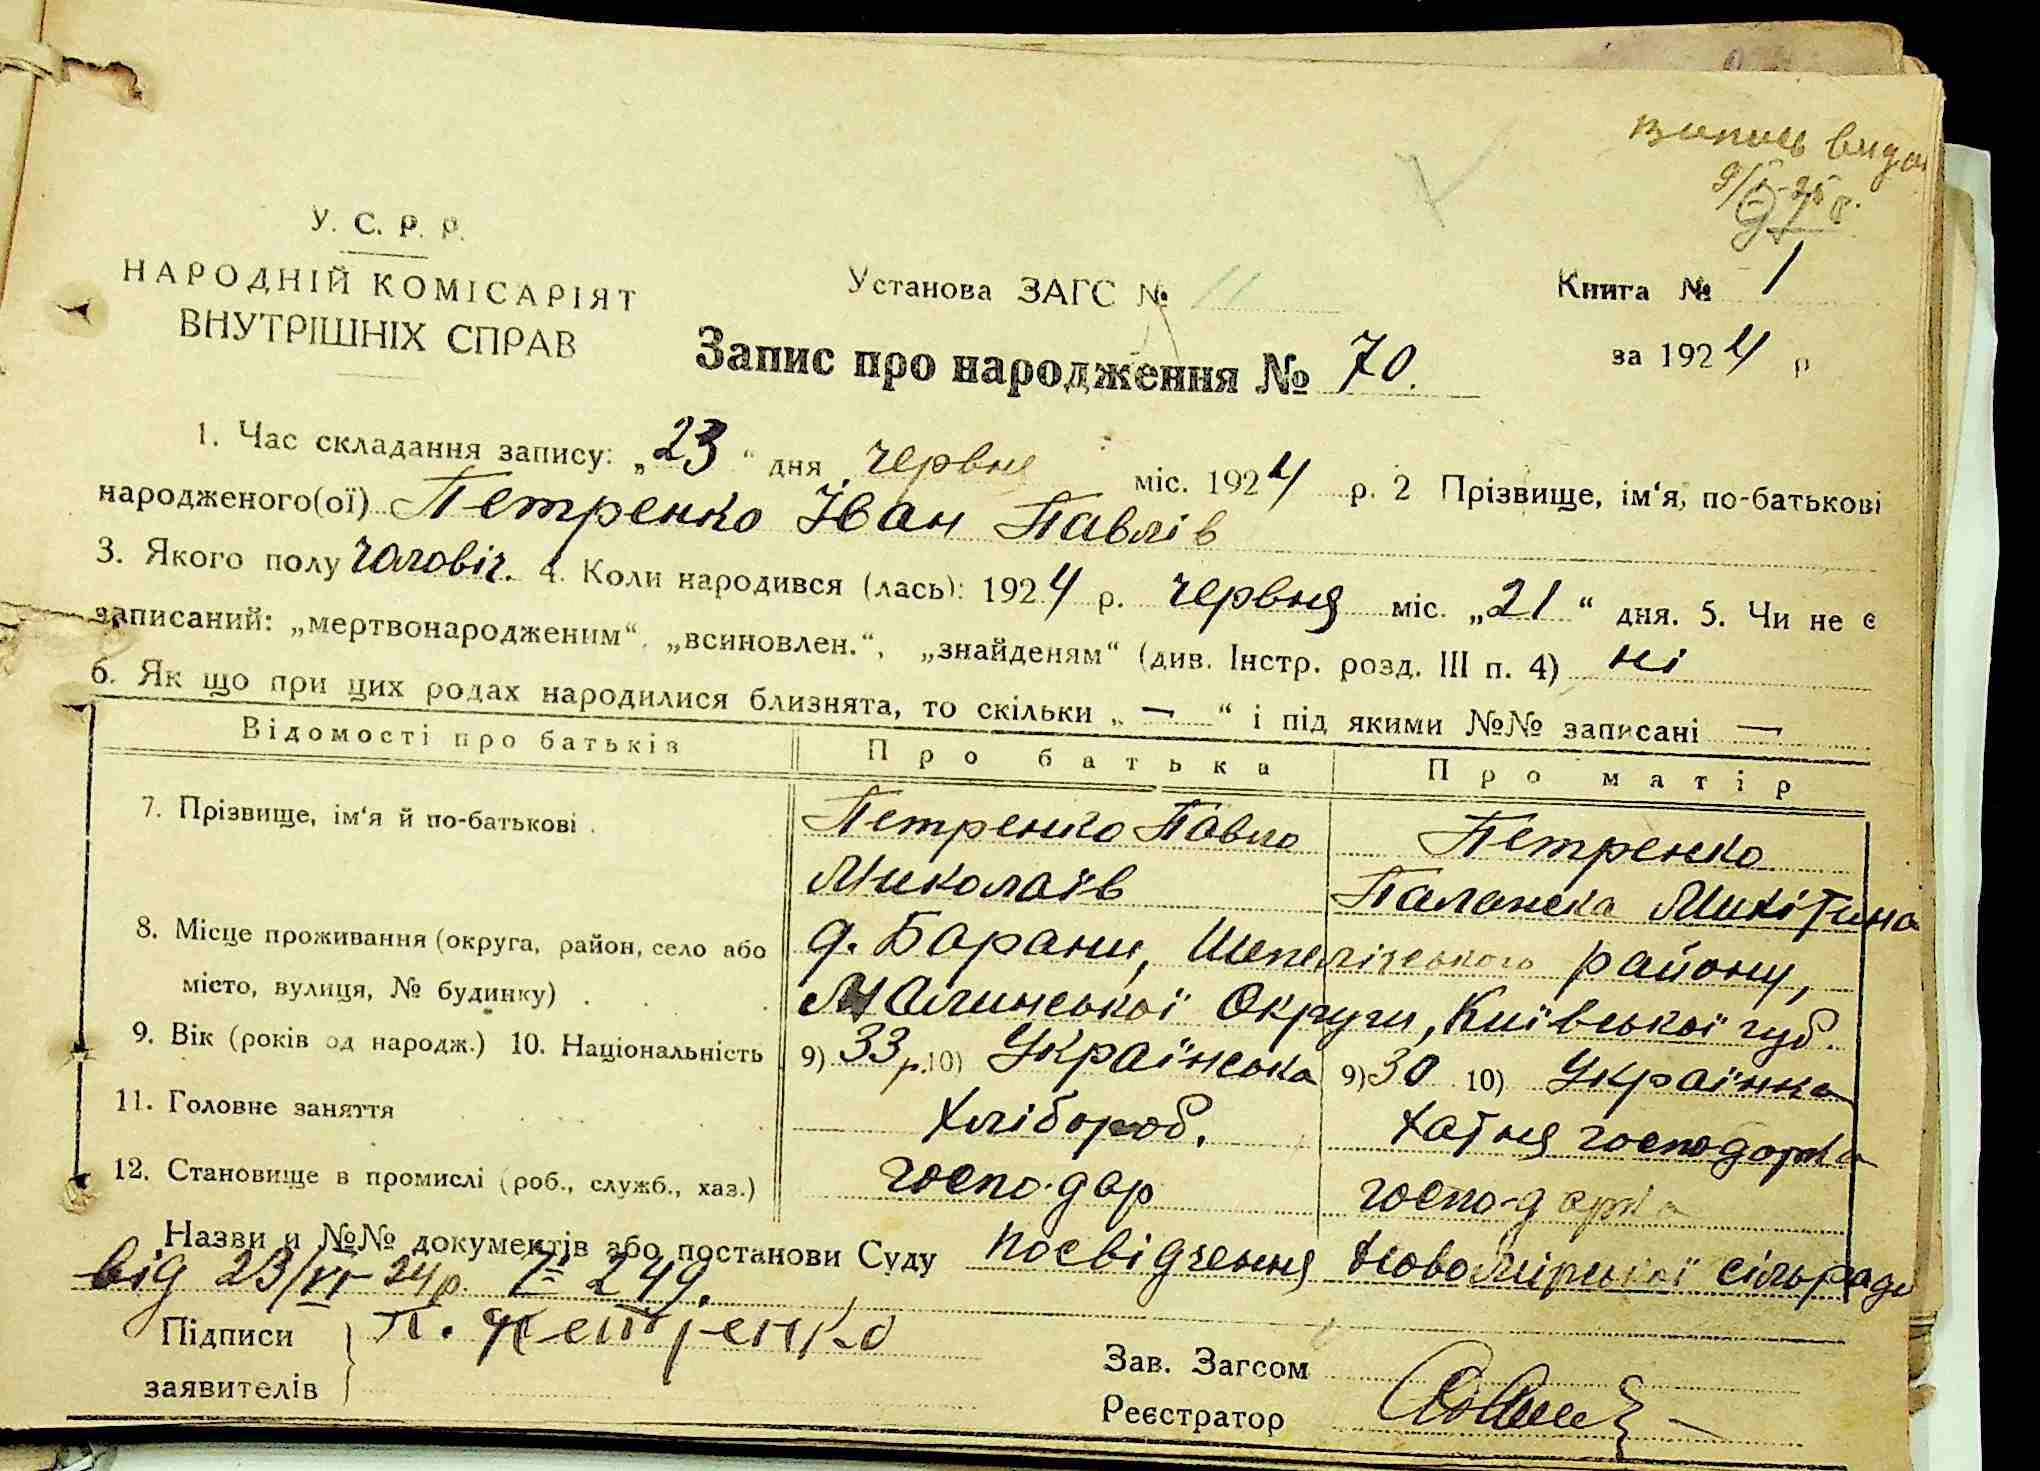 випись видан
У. С. Р. Р.
НАРОДНІЙ КОМІСАРІЯТ
ВНУТРІШНІХ СПРАВ
Установа ЗАГС № 11
Книга № 1
Запис про народження № 70.
за 1924 р
1. Час складання запису: „23“ дня червня міс. 1924 р. 2 Прізвище, ім‘я, по-батькові
народженого(ої) Петренко Іван Павлів
3. Якого полу чоловіч. 4. Коли народився (лась): 1924 р. червня міс. „21“ дня. 5. Чи не є
записаний: „мертвонародженим“, „всиновлен.“, „знайденям“ (див. Інстр. розд. III п. 4) ні
6. Як що при цих родах народилися близнята, то скільки „ — “ і під якими №№ записані —
Відомості про батьків Про батька Про матір
7. Прізвище, ім‘я й по-батькові . Петренко Павло Петренко
Миколаїв Палажка Микітина
8. Місце проживання (округа, район, село або д. Борани, Шепелічського району,
місто, вулиця, № будинку) . Малинської Округи, Київської губ.
9. Вік (років од народж.) 10. Національність 9) 33 р. 10) Українська 9) 30 10) Українка
11. Головне заняття хлібороб. хатня господарка
12. Становище в промислі (роб., служб., хаз.) господар господарка
Назви и №№ документів або постанови Суду посвідчення Новомирської сільради
від 23/VI 24р. № 249.
Підписи П. Петренко
заявителів
Зав. Загсом
Реєстратор